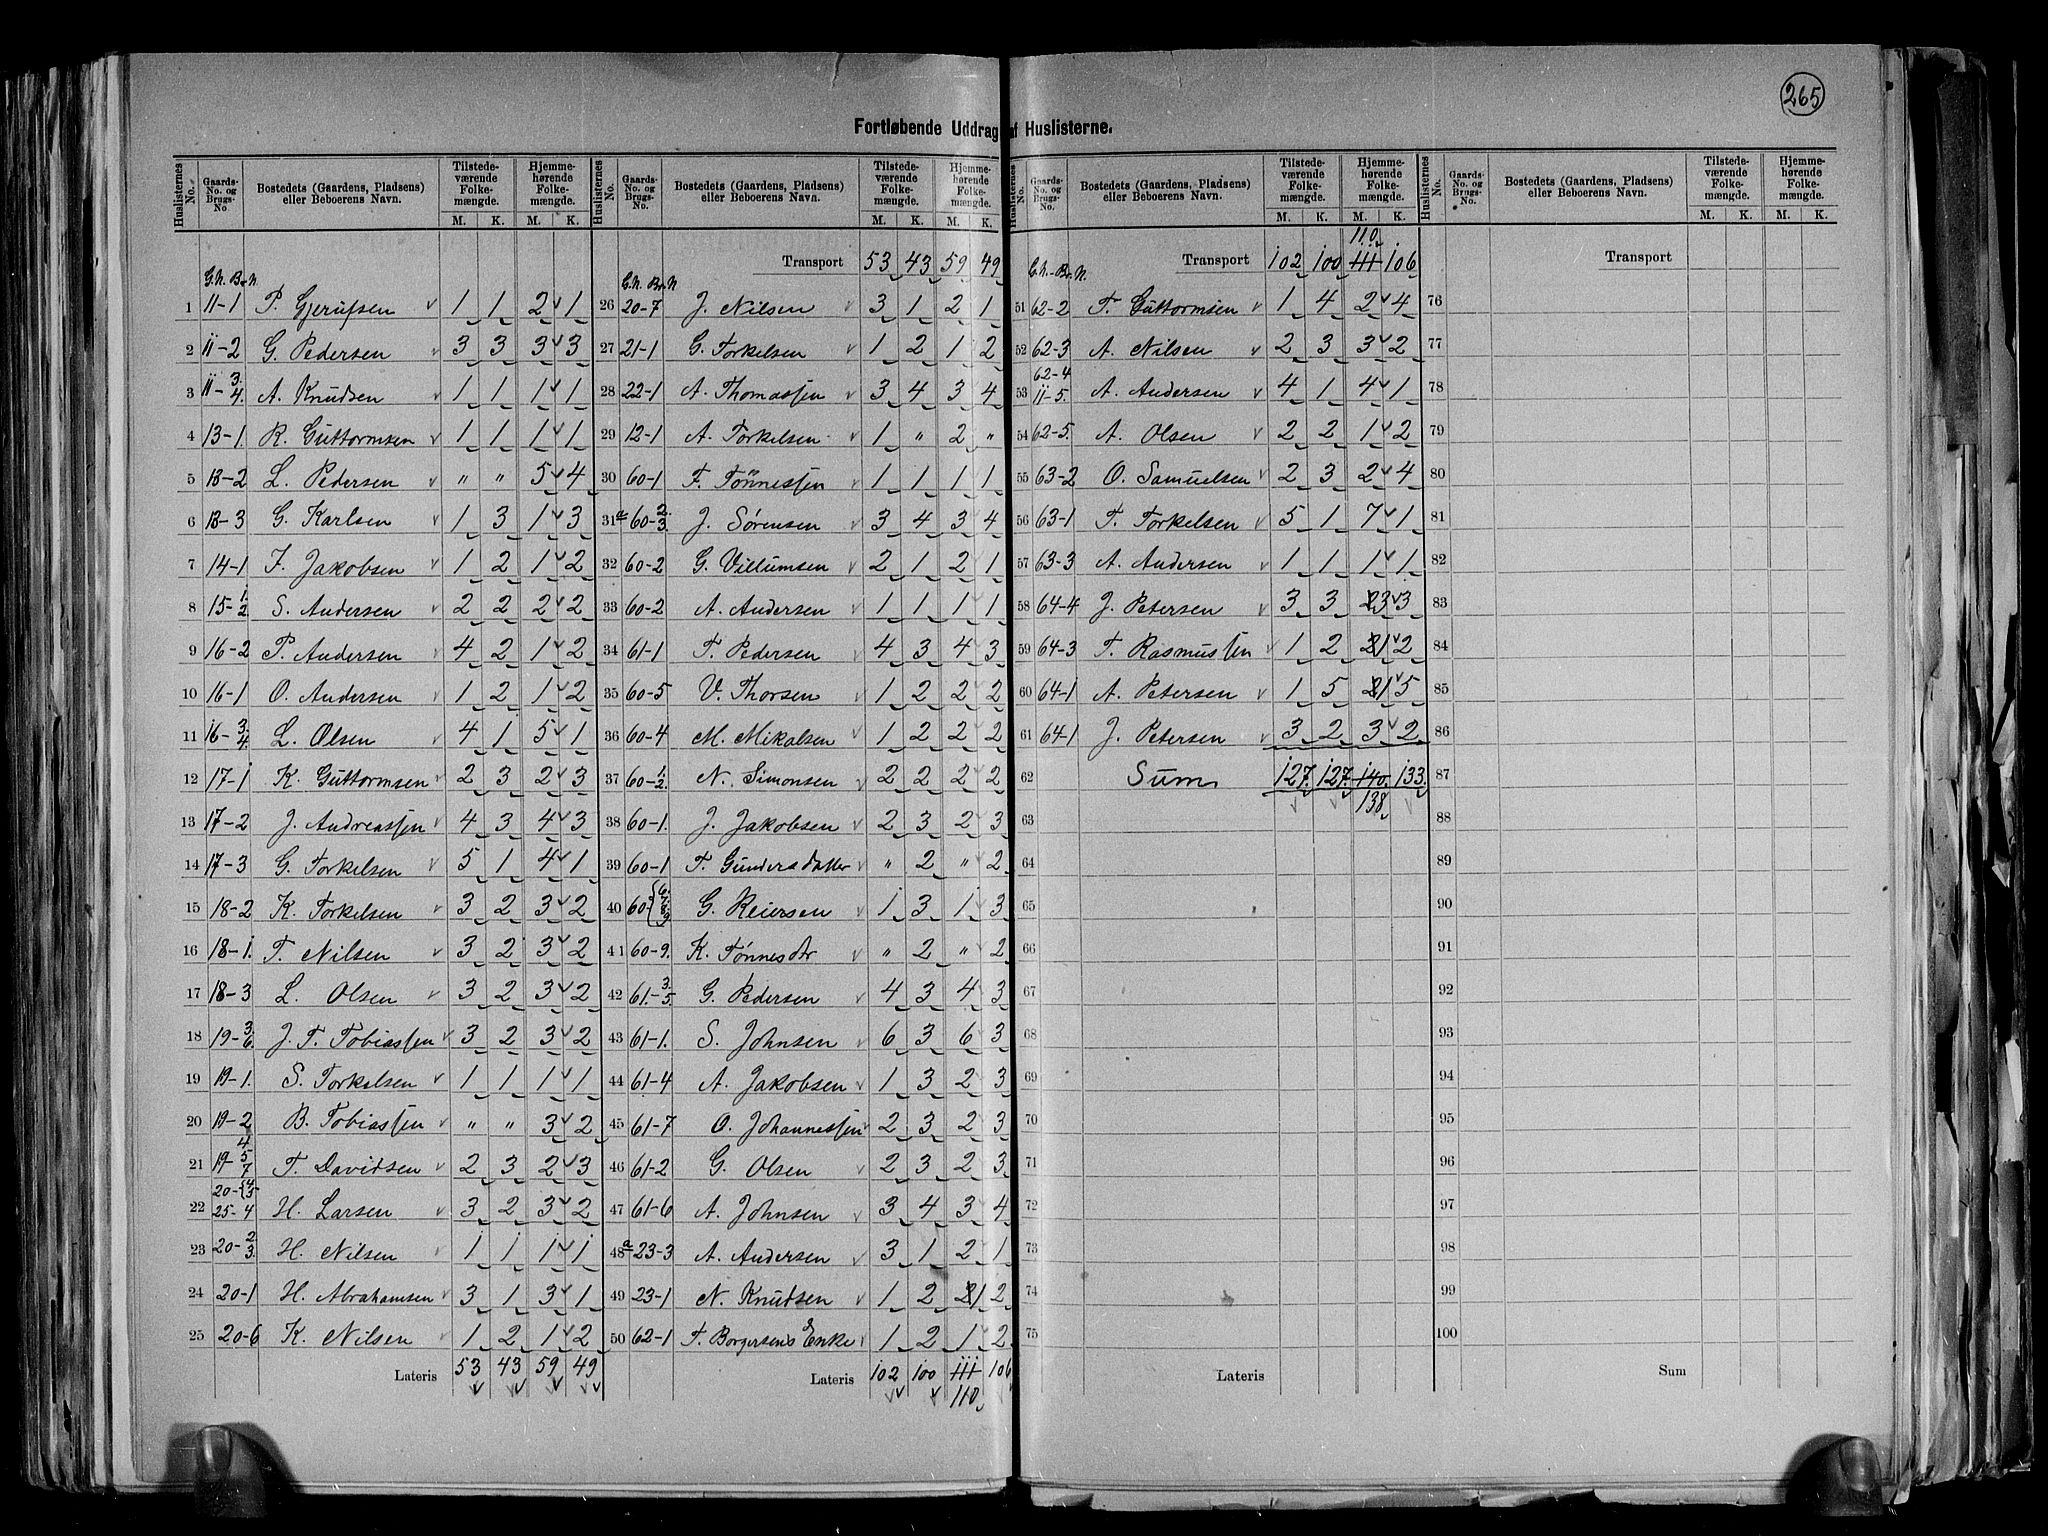 265
Fortløbende Uddrag af Huslisterne.
Huslisternes No. | Gaards-No. og Brugs-No | Bostedets (Gaardens, Pladsens) eller Beboerens Navn. | Tilstedeværende Folkemængde. M. K. | Hjemmehørende Folkemængde. M. K.
G.N. Br.N
1 11-1 P. Gjerulfsen 1 1 2 1
2 11-2 G. Pedersen 3 3 3 3
3 11-3.4. A. Knudsen 1 1 1 1
4 13-1. R. Guttormsen 1 1 1 1
5 13-2 L. Pedersen " " 5 4
6 13-3 G. Karlsen 1 3 1 3
7 14-1 J. Jakobsen 1 2 1 2
8 15-1.2 S. Andersen 2 2 2 2
9 16-2 P. Andersen 4 2 1 2
10 16-1 O. Andersen 1 2 1 2
11 16-3.4. L. Olsen 4 1 5 1
12 17-1 K. Guttormsen 2 3 2 3
13 17-2 J. Andreassen 4 3 4 3
14 17-3 G. Torkelsen 5 1 4 1
15 18-2 K. Torkelsen 3 2 3 2
16 18-1. T. Nilsen 3 2 3 2
17 18-3 L. Olsen 3 2 3 2
18 19-3.6. J. T. Tobiassen 3 2 3 2
19 19-1. S. Torkelsen 1 1 1 1
20 19-2 B. Tobiassen " " 3 2
21 19-4 5 7 T. Davidsen 2 3 2 3
22 20-{4 3 25-4 H. Larsen 3 2 3 2
23 20-2.3. H. Nilsen 1 1 1 1
24 20-1 H. Abrahamsen 3 1 3 1
25 20-6 K. Nilsen 1 2 1 2
Lateris 53 43 59 49
Huslisternes No. | Gaards-No. og Brugs-No. | Bostedets (Gaardens, Pladsens) eller Beboerens Navn. | Tilstedeværende Folkemængde. M. K. | Hjemmehørende Folkemængde. M. K.
Transport 53 43 59 49
G.N. Br.N
26 20-7 J. Nilsen 3 1 2 1
27 21-1 G. Torkelsen 1 2 1 2
28 22-1 A. Thomassen 3 4 3 4
29 12-1 A. Torkelsen 1 " 2 "
30 60-1 F. Tønnessen 1 1 1 1
31a 60-2.3. J. Sørensen 3 4 3 4
32 60-2 G. Villumsen 2 1 2 1
33 60-2 A. Andersen 1 1 1 1
34 61-1 T. Pedersen 4 3 4 3
35 60-5 V. Thorsen 1 2 2 2
36 60-4 M. Mikalsen 1 2 2 2
37 60-1.2. N. Simonsen 2 2 2 2
38 60-1. J. Jakobsen 2 3 2 3
39 60-1 T. Gundersdatter " 2 " 2
40 60-{ G. Reiersen 1 3 1 3
41 60-9. K. Tønnesdtr " 2 " 2
42 61.-3.5. G. Pedersen 4 3 4 3
43 61-1. S. Johnsen 6 3 6 3
44 61-4 A. Jakobsen 1 3 2 3
45 61-7 O. Johannessen 2 3 2 3
46 61-2 G. Olsen 2 3 2 3
47 61-6 A. Johnsen 3 4 3 4
48a 23-3 A. Andersen 3 1 2 1
49 23-1 N. Knudsen 1 2 2 1 2
50 62-1 T. Borgersens Enke 1 2 1 2
Lateris 102 100 111 106
110
Huslisternes No. | Gaards-No. og Brugs-No. | Bostedets (Gaardens, Pladsens) eller Beboerens Navn. | Tilstedeværende Folkemængde. M. K. | Hjemmehørende Folkemængde. M. K.
110
Transport 102 100 111 106
G.N.-Br.N.
51 62-2 T. Guttormsen 1 4 2 4
52 62-3 A. Nilsen 2 3 3 2
53 62-4 11-5. A. Andersen 4 1 4 1
54 62-5. A. Olsen 2 2 1 2
55 63-2 O. Samuelsen 2 3 2 4
56 63-1 T. Torkelsen 5 1 7 1
57 63-3 A. Andersen 1 1 1 1
58 64-4 J. Petersen 3 3 2 3 3
59 64-3 T. Rasmussen 1 2 2 1 2
60 64-1 A. Petersen 1 5 2 1 5
61 64-1 J. Petersen 3 2 3 2
62 Sum 127 127 140 133
138
63
64
65
66
67
68
69
70
71
72
73
74
75
Lateris
Huslisternes No. | Gaards-No. og Brugs-No. | Bostedets (Gaardens, Pladsens) eller Beboerens Navn. | Tilstedeværende Folkemængde. M. K. | Hjemmehørende Folkemængde. M. K.
Transport
76
77
78
79
80
81
82
83
84
85
86
87
88
89
90
91
92
93
94
95
96
97
98
99
100
Sum